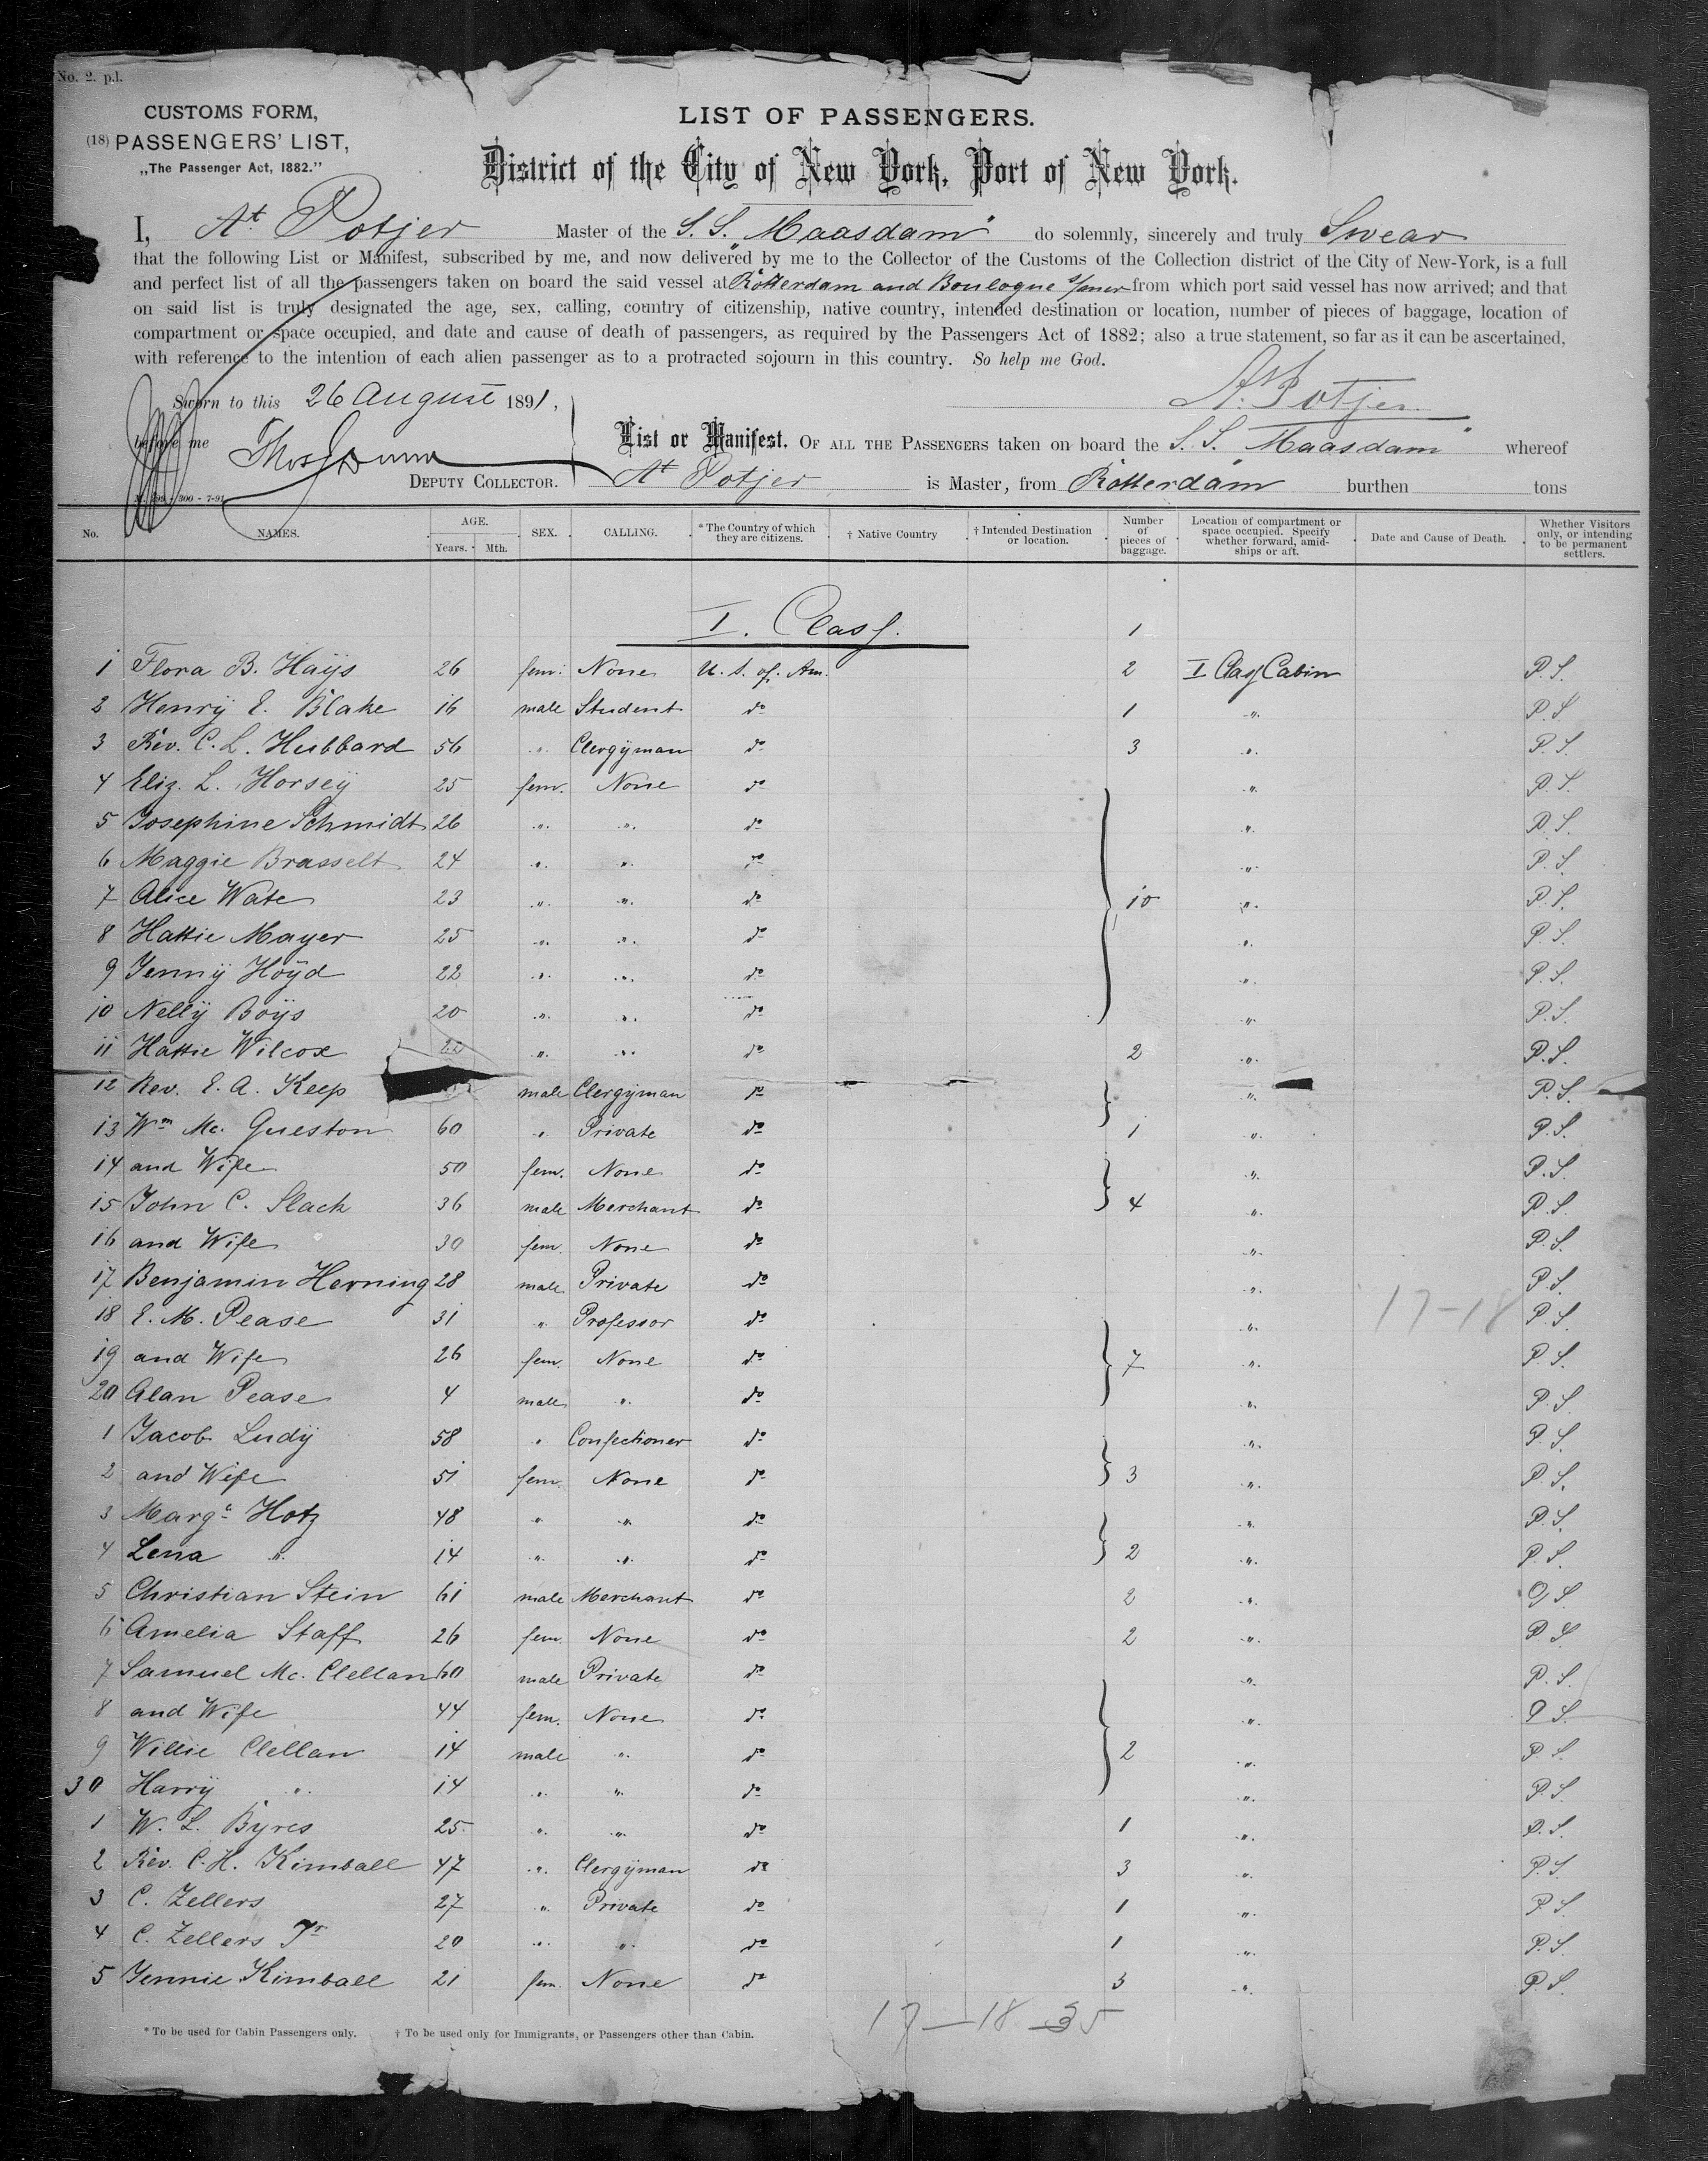 No. 2. p.l.
CUSTOMS FORM,
(18) PASSENGERS' LIST,
„The Passenger Act, 1882."
LIST OF PASSENGERS.
District of the City of New York, Port of New York.
I, At Potjer Master of the S.S. "Maasdam" do solemnly, sincerely and truly Swear
that the following List or Manifest, subscribed by me, and now delivered by me to the Collector of the Customs of the Collection district of the City of New-York, is a full
and perfect list of all the passengers taken on board the said vessel at Rotterdam and Boulogne s/mer from which port said vessel has now arrived; and that
on said list is truly designated the age, sex, calling, country of citizenship, native country, intended destination or location, number of pieces of baggage, location of
compartment or space occupied, and date and cause of death of passengers, as required by the Passengers Act of 1882; also a true statement, so far as it can be ascertained,
with reference to the intention of each alien passenger as to a protracted sojourn in this country. So help me God.
At Potjer
Sworn to this 26 August 1891,
before me
DEPUTY COLLECTOR.
List or Manifest. OF ALL THE PASSENGERS taken on board the S.S. "Maasdam" whereof
At Potjer is Master, from Rotterdam burthen tons
No. NAMES. AGE. Years. Mth. SEX. CALLING. * The Country of which they are citizens. † Native Country † Intended Destination or location. Number of pieces of baggage. Location of compartment or space occupied. Specify whether forward, amidships or aft. Date and Cause of Death. Whether Visitors only, or intending to be permanent settlers.
I. Class. 1
1 Flora B. Hays 26 fem. None U. S. of. Am. 2 I Class Cabin P.S.
2 Henry E. Blake 16 male Student do 1 " P.S
3 Rev. C. L. Hubbard 56 " Clergyman do 3 " P.S.
4 Eliz. L. Horsey 25 fem. None do " P.S.
5 Josephine Schmidt 26 " " do " P.S.
6 Maggie Brasselt 24 " " do " P.S
7 Alice Wate 23 " " do 10 " P.S.
8 Hattie Mayer 25 " " do " P.S.
9 Jenny Hoyd 22 " " do " P.S.
10 Nelly Boys 20 " " do " P.S.
11 Hattie Wilcox 22 " " do 2 " P.S.
12 Rev. E. A. Keep male Clergyman do " P.S.
13 Wm Mc. Gueston 60 " Private do 1 " P.S.
14 and Wife 50 fem. None do " P.S.
15 John C. Slack 36 male Merchant do 4 " P.S.
16 and Wife 30 fem. None do " P.S.
17 Benjamin Horning 28 male Private do " P.S.
18 E. M. Pease 31 " Professor do " 17-18 P.S.
19 and Wife 26 fem. None do 7 " P.S.
20 Alan Pease 4 male " do " P.S.
1 Jacob Ludy 58 " Confectioner do " P.S.
2 and Wife 51 fem. None do 3 " P.S.
3 Marga Hotz 48 " " do " P.S.
4 Lena " 14 " " do 2 " P.S.
5 Christian Stein 61 male Merchant do 2 " P.S.
6 Amelia Staff 26 fem. None do 2 " P.S
7 Samuel Mc. Clellan 60 male Private do " P.S.
8 and Wife 44 fem. None do " P.S.
9 Willie Clellan 14 male " do 2 " P.S.
30 Harry " 14 " " do " P.S.
1 W. L. Byres 25 " " do 1 " P.S.
2 Rev. C. H. Kimball 47 " Clergyman do 3 " P.S
3 C. Zellers 27 " Private do 1 " P.S
4 C. Zellers Jr 20 " " do 1 " P.S.
5 Jennie Kimball 21 fem. None do 3 " P.S.
17-18-35
* To be used for Cabin Passengers only. † To be used only for Immigrants, or Passengers other than Cabin.